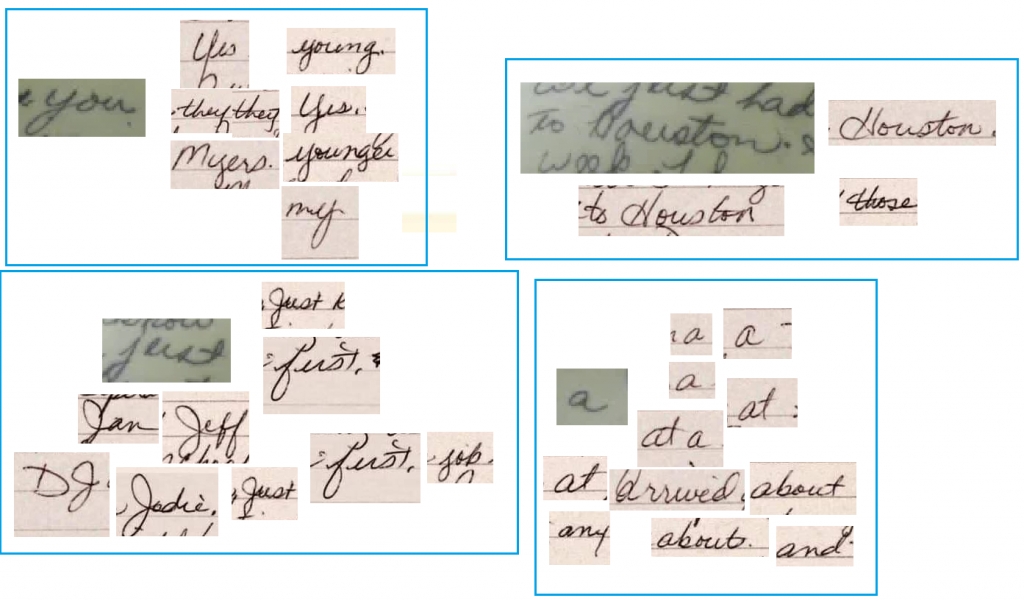 Yes
young.
you
they they
Yes.
Myers.
younger
my
we just had
to Houston.
week.
Houston.
to Houston
those
Just
know
just
first,
Jan
Jeff
first,
job.
DJ
Jodie,
Just
a
a
a
a
at
at a
at
arrived
about
any
about.
and